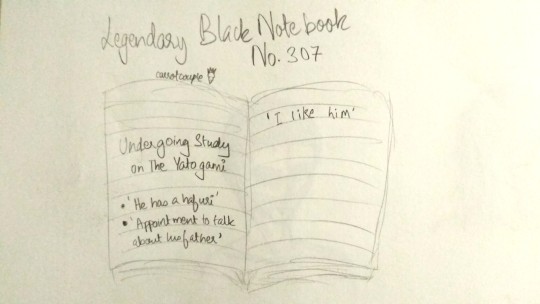 Legendary Black Notebook
No. 307
carrotcouple
Undergoing Study
on The Yatogami
• 'He has a hafuri'
• 'Appointment to talk
about his father'
'I like him'